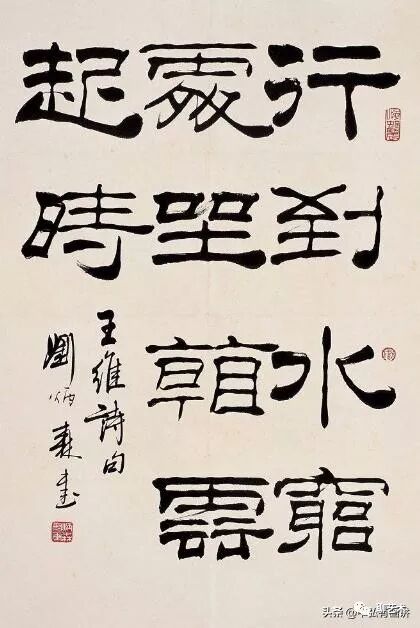 行到水窮
處坐看雲
起時
王維詩句
劉炳森書
头条